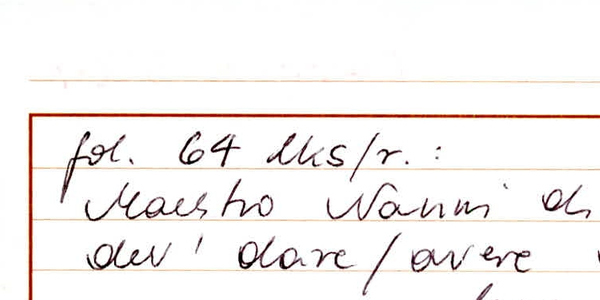 fol. 64 lks/r. :
Maestro Nanni di
dev' dare/avere